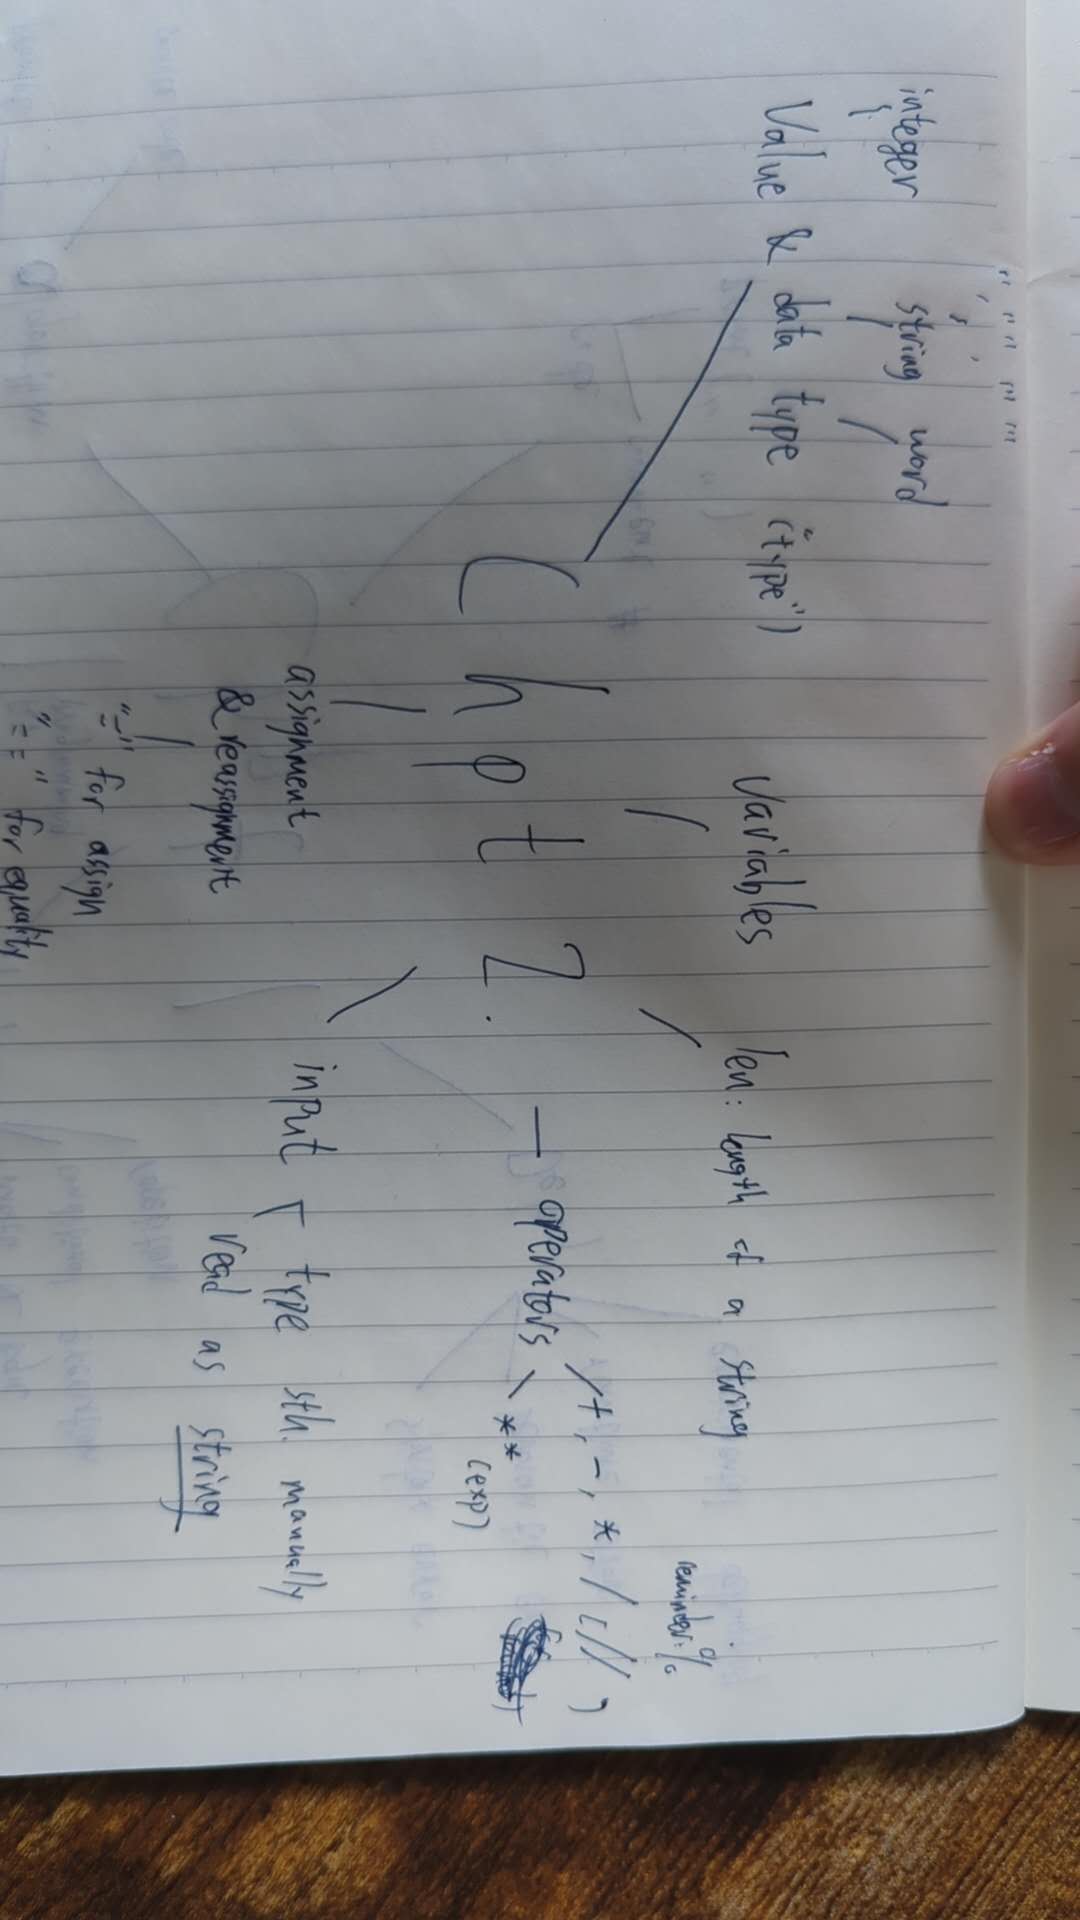 " " " " "' '"
' '
integer string word
Value & data type ("type")
Variables
len: length of a string
reminder: %
Chpt 2.
operators
+, -, *, / ( // )
** (exp)
assignment
& reassignment
"=" for assign
"==" for equality
input
type sth. manually
read as string